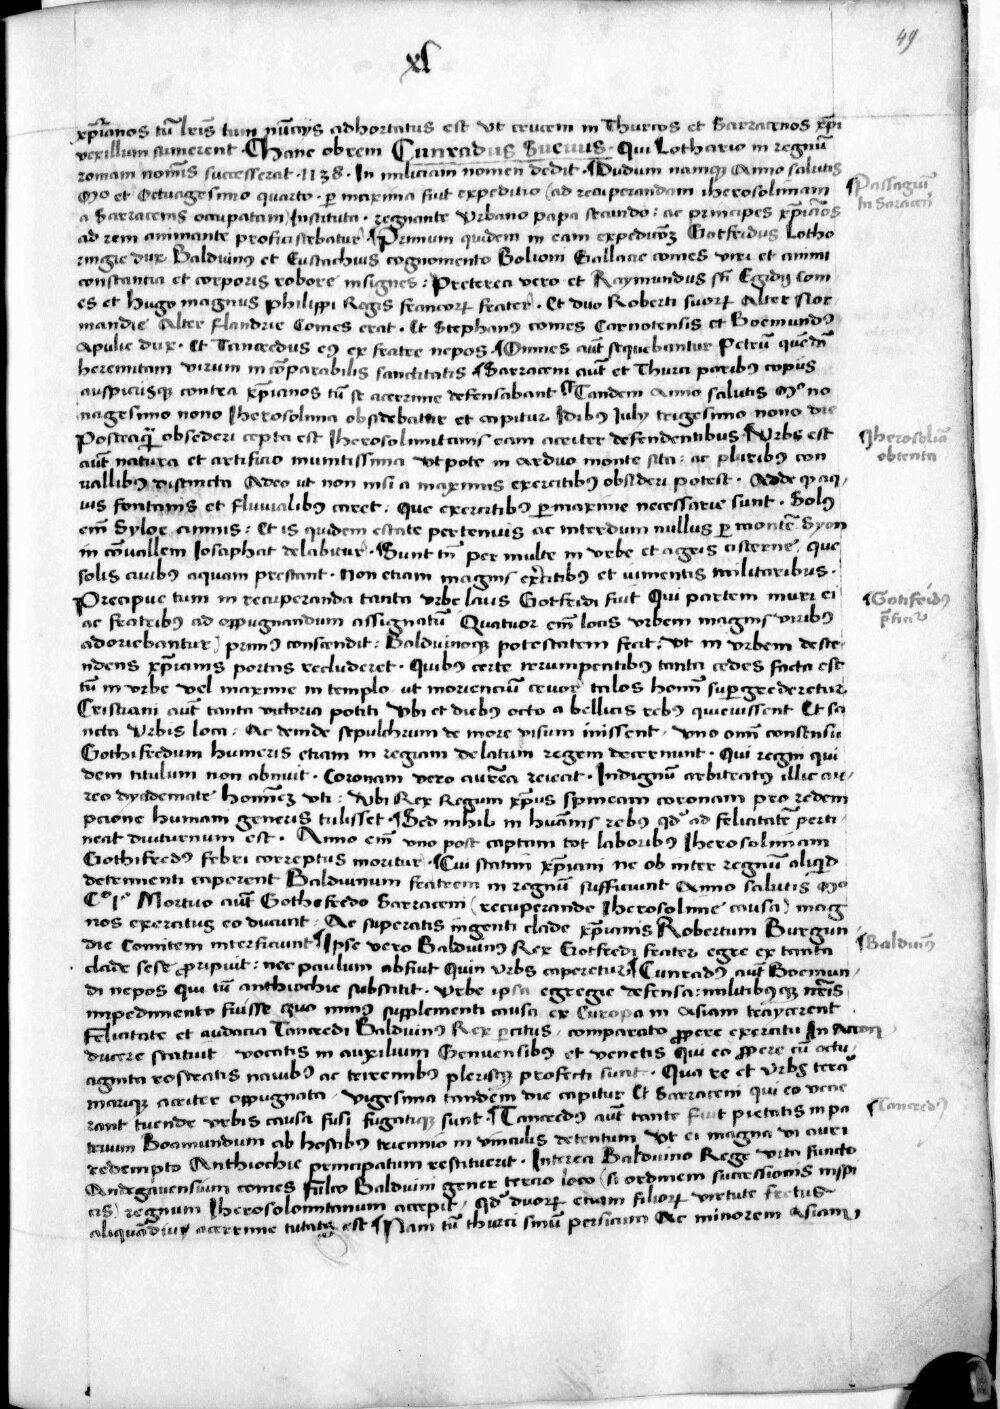 49
xl
xp̄ianos tū lr̄is tum nūcijs adhortatus est vt crucem in Thurcos et Sarracenos xp̄i
vexillum sumerent · Hanc obrem Cunradus Suevus · Qui Lothario in regnū
romanū nomīs successerat · 1138 · In miliciam nomen dedit · Dudum namqꝫ Anno salutis
Mº et Octuagesimo quarto · ꝑ maxima fuit expeditio (ad recuperandam iherosolimam
a Sarracenis occupatam) Instituta · regnante Urbano papa secundo : ac principes xp̄ianos
ad rem animante proficiscebatur Primum quidem in eam expedicōꝫ Gotfridus Lotho
ringie dux Balduinus et Eustachius cognomento Boliom Gallace comes viri et animi
constantia et corporis robore insignes : Preterea vero et Raymundus sti Egidij com
es et Hugo magnus philippi Regis francorꝝ frater · Et duo Roberti suorꝝ Alter Nor
mandie Alter flandrie Comes erat · Et Stephanꝰ comes Carnotensis et Boemundꝰ
Apulie dux · Et Tancredus eꝰ ex fratre nepos Omnes aūt sequebantur Petrū quēdā
heremitam virum incōparabilis sanctitatis Sarraceni aūt et Thurci paribꝰ copijs
auspicijsqꝫ contra xp̄ianos tū se acerrime defensabant Tandem Anno salutis Mº no
nagesimo nono Iherosolima obsidebatur et capitur Idibꝰ Iuly trigesimo nono die
Posteaꝙ̄ obsideri cepta est Iherosolimitanis eam acriter defendentibus Urbs est
aūt natura et artificio munitissima vtpote in arduo monte sita : ac pluribꝰ con
vallibꝰ distincta Adeo ut non nisi a maximis exercitibꝰ obsideri potest · Adde ꝙ aq,
uis fontanis et fluvialibꝰ caret : Que exercitibꝰ ꝑmaxime necessarie sunt · Solꝰ
em̄ Syloe amnis : Et is quidem estate pertenuis ac interdum nullus ꝑ montē Syon
in cōvallem Iosaphat delabitur · Sunt tn̄ per multe in vrbe et agris cisterne, que
solis civibꝰ aquam prestant · non etiam magnis exercitibꝰ et iumentis militaribus ·
Precipue tum in recuperanda tanta vrbe laus Gotfridi fuit Qui partem muri ei
ac fratribus ad oppugnandum assignatū Quatuor em̄ locis vrbem magnis viribus
adoriebantur) primꝰ conscendit : Balduinoqꝫ potestatem fecit : Vt in vrbem desce
ndens xp̄ianis portas recluderet · Quibus certe irrumpentibus tanta cedes facta est
tū in vrbe vel maxime in templo · ut moriencium cruor talos homīm supergrederetur
Cristiani aūt tanta victoria potiti Vbi et diebus octo a bellicis rebꝰ quievissent Et sa
ncta Urbis loca : Ac deinde sepulchrum de more visum inissent · vno omī consensu
Gothifredum humeris etiam in regiam delatum regem decernunt · Qui regni qui
dem titulum non abnuit · Coronam vero auream reiecit · Indignū arbitratus illic au,
reo dyademate hominēꝫ vti : Vbi Rex Regum xp̄us spineam coronam pro redem
pcione humani generis tulisset · Sed nihil in hūanis rebus qd̄ ad felicitatē perti
neat diuturnum est · Anno em̄ vno post captam tot laboribus Iherosolimam
Gothifredꝰ febri correptus moritur · Cui statim xp̄iani ne ob inter regnū aliqd̄
detrimenti caperent Balduinum fratrem in regnū sufficiunt Anno salutis Mº
Cº Iº Mortuo aūt Gothifredo Sarraceni (recuperande Iherosolime causa) mag
nos exercitus eo ducunt · Ac superatis ingenti clade xp̄ianis Robertum Burgun
die Comitem interficiunt Ipse vero Balduinꝰ Rex Gotfredi frater egre ex tanta
clade sese ꝓripuit : nec paulum abfuit Quin Urbs caperetur Cunradꝰ aūt Boemun,
di nepos qui tū anthiochie substitit · Urbe ipsa egregie defensa : militibusqꝫ nr̄is
impedimento fuisse quo minꝰ supplementi causa ex Europa in Asiam traycerent
Felicitate et audacia Tancredi Balduinꝰ Rex ꝑcitus · comparato ꝓpere exercitu In Accon
ducere statuit · vocatis in auxilium Genuensibꝰ et venetis Qui eo ꝓpere cū octu,
aginta rostratis navibꝰ ac triremibꝰ plerisqꝫ profecti sunt · Qua re et Urbs terra
mariqꝫ acriter oppugnata · vigesima tandem die capitur Et Sarraceni qui eo vene
rant tuende vrbis causa fusi fugatiqꝫ sunt · Tancredꝰ aūt tante fuit pietatis in pa
truum Boamundum ab hostibꝰ triennio in vinculis detentum Vt ei magna vi auri
redempto Anthiochie principatum restituerit · Interea Balduino Rege vita functo
Andegavensium comes Fulco Balduini gener tercio loco (si ordinem successionis inspi
cis) regnum Iherosolimitanum accepit, qd̄ duorꝝ etiam filiorꝝ virtute fretus
aliquādiu acerrime tutatus est Nam tū thurci sinū persicum Ac minorem Asiam,
Passagiū
In Saracen
Iherosolīa
obtenta
Gotifridꝰ
Balduinꝰ
Tancredꝰ